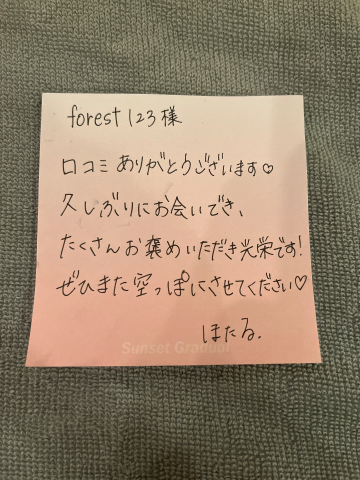 forest123様
口コミありがとうございます♡
久しぶりにお会いでき、
たくさんお褒めいただき光栄です!
ぜひまた空っぽにさせてください♡
ほたる.
Sunset Gradation